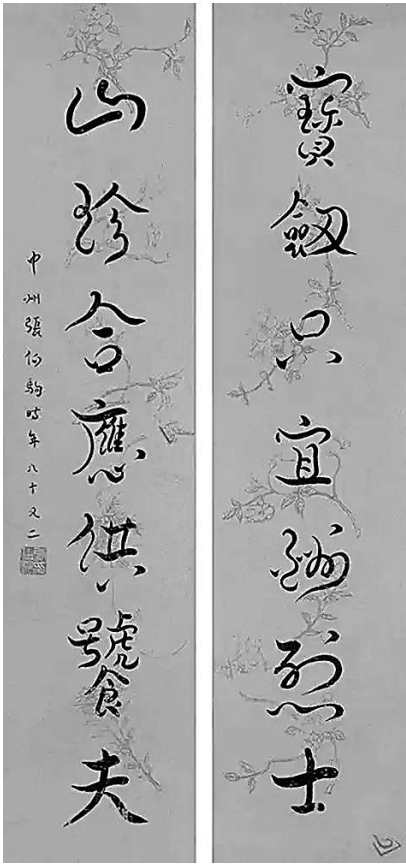 寶劔只宜酬烈士
山珍合應供饕夫
中州張伯駒時年八十又二